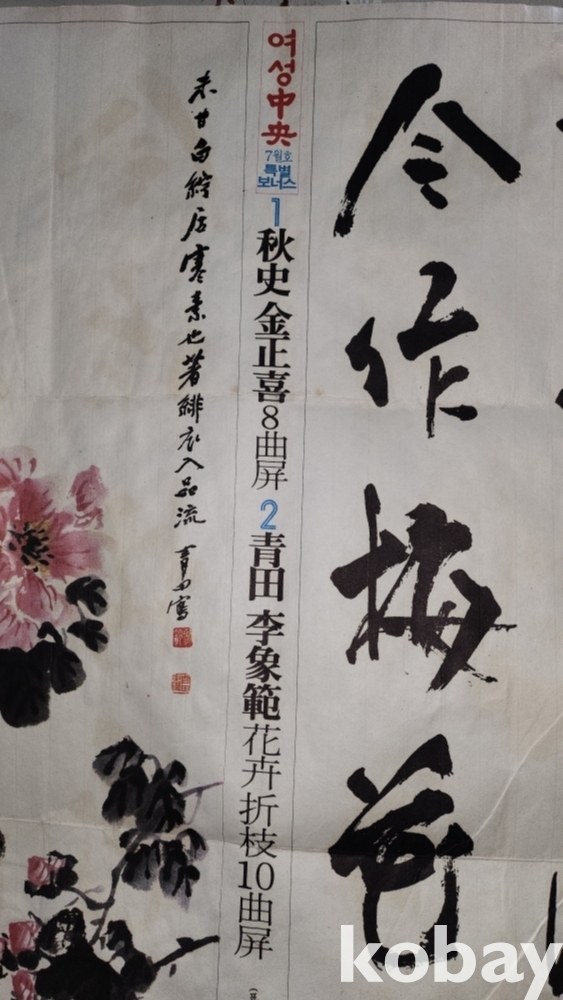 令作梅花
여성中央
7월호
특별
보너스
1 秋史 金正喜 8曲屏 2 青田 李象範 花卉折枝10曲屏
未甘白紵居寒素也著緋衣入品流 青田寫
kobay